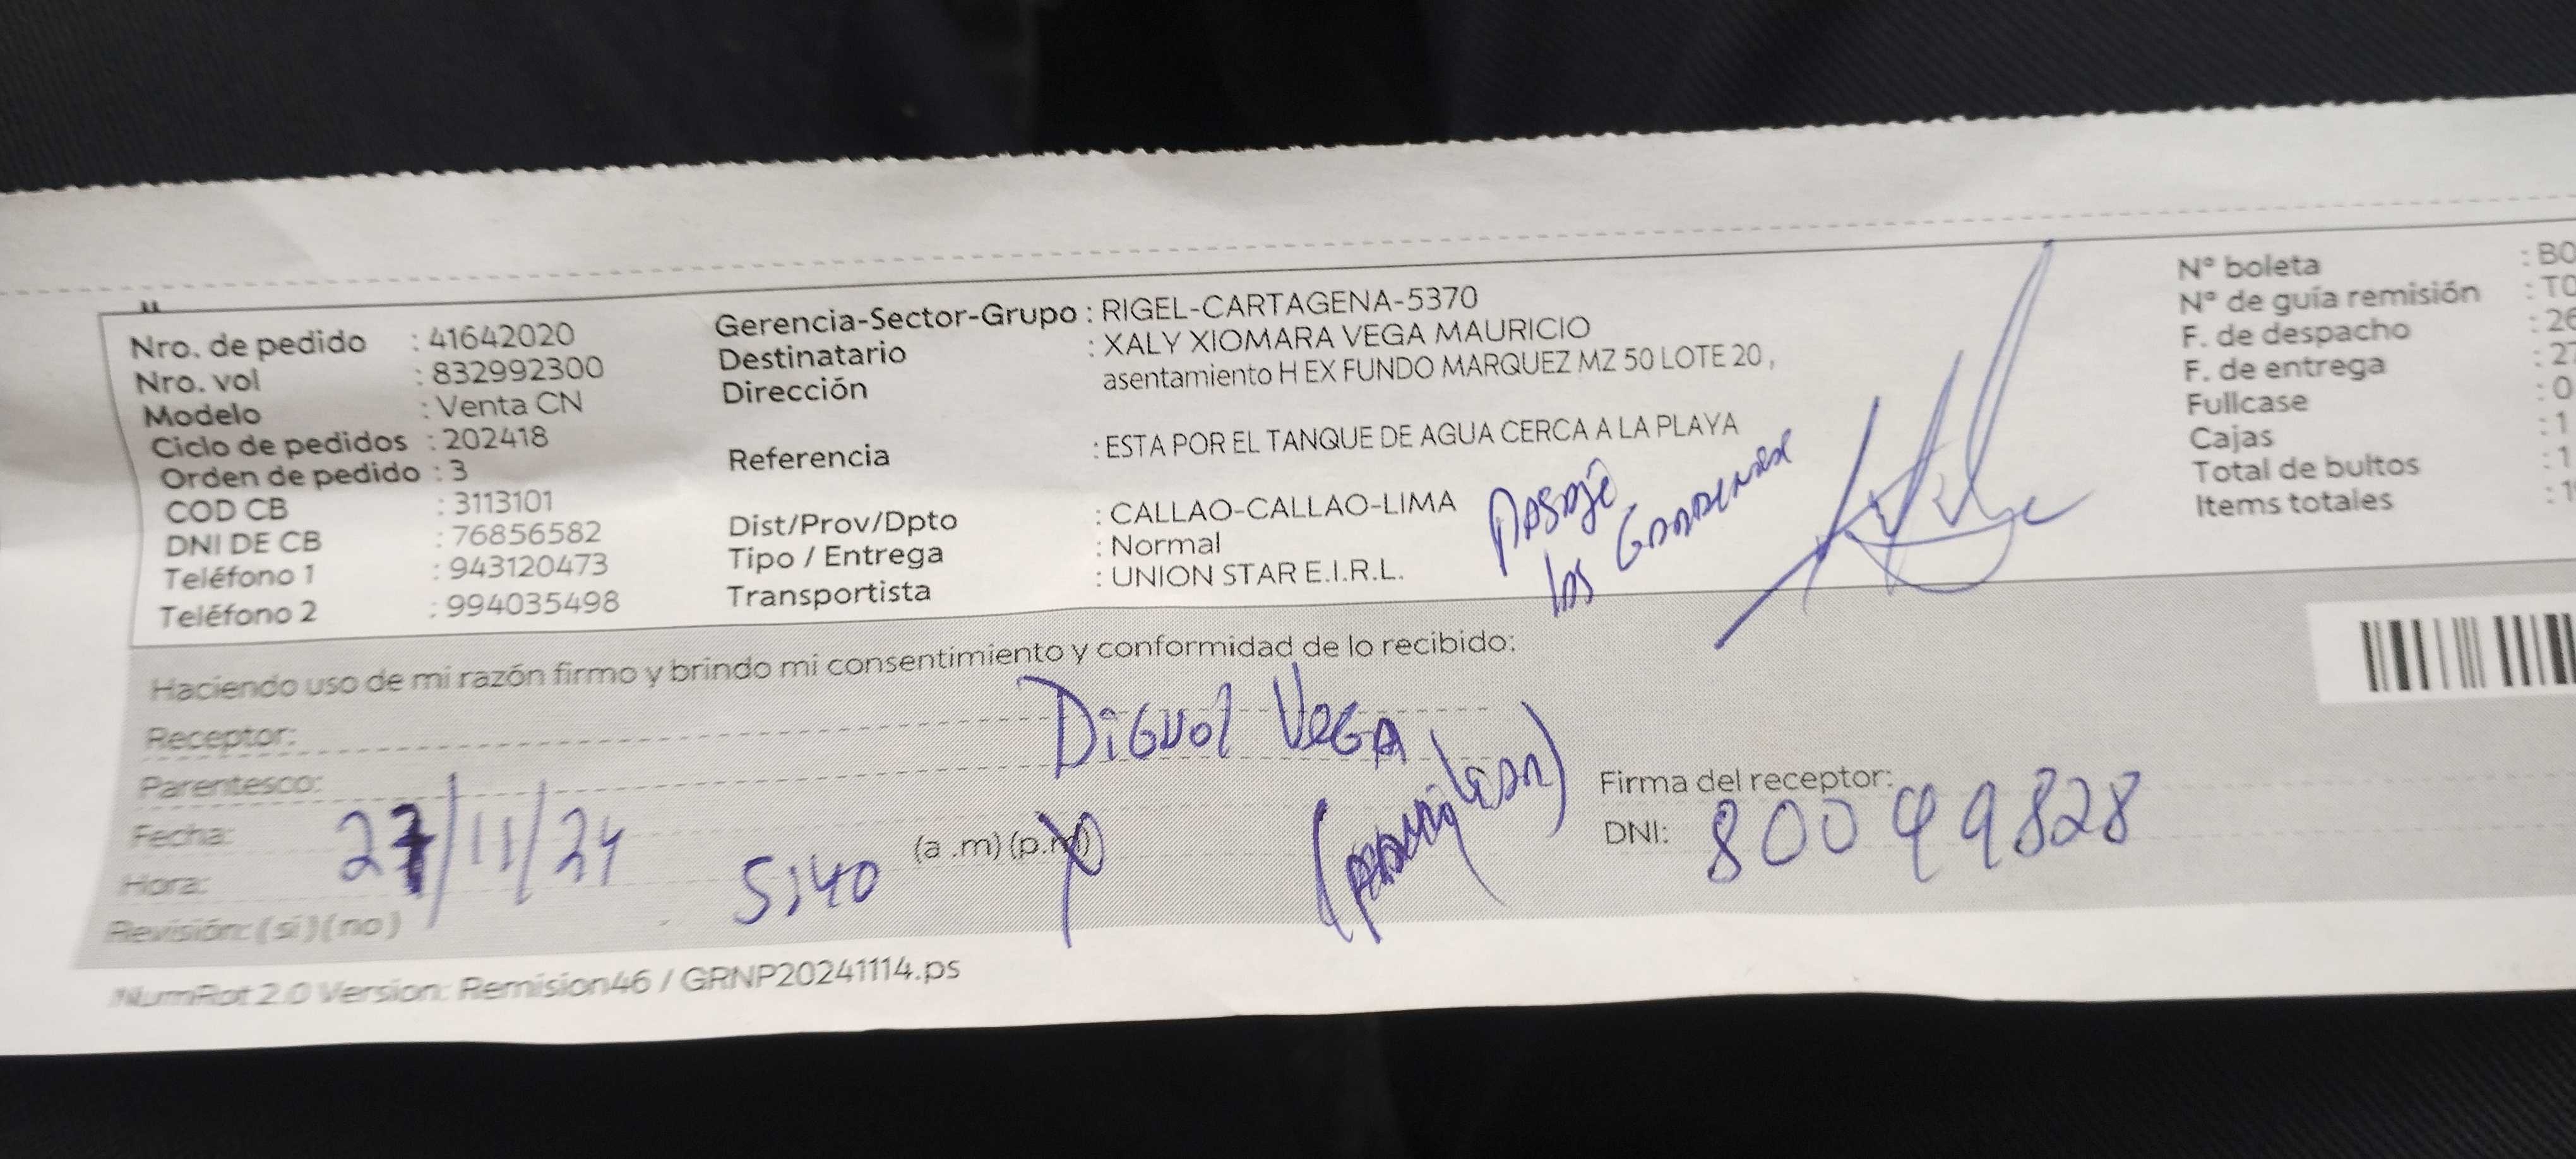 Nro. de pedido : 41642020
Nro. vol : 832992300
Modelo : Venta CN
Ciclo de pedidos : 202418
Orden de pedido : 3
COD CB : 3113101
DNI DE CB : 76856582
Teléfono 1 : 943120473
Teléfono 2 : 994035498
Gerencia-Sector-Grupo : RIGEL-CARTAGENA-5370
Destinatario : XALY XIOMARA VEGA MAURICIO
Dirección asentamiento H EX FUNDO MARQUEZ MZ 50 LOTE 20 ,
Referencia : ESTA POR EL TANQUE DE AGUA CERCA A LA PLAYA
Dist/Prov/Dpto : CALLAO-CALLAO-LIMA
Tipo / Entrega : Normal
Transportista : UNION STAR E.I.R.L.
Pasaje
los
N° boleta : B0
N° de guía remisión : T0
F. de despacho : 26
F. de entrega : 27
Fullcase : 0
Cajas : 1
Total de bultos : 1
Items totales : 1
Haciendo uso de mi razón firmo y brindo mi consentimiento y conformidad de lo recibido:
Receptor: Vega
Parentesco:
Fecha: 27/11/24
Hora: 5:40 (a .m) (p.m)
Revisión: ( si ) ( no )
Firma del receptor:
DNI: 80049828
NumRot 2.0 Version: Remision46 / GRNP20241114.ps